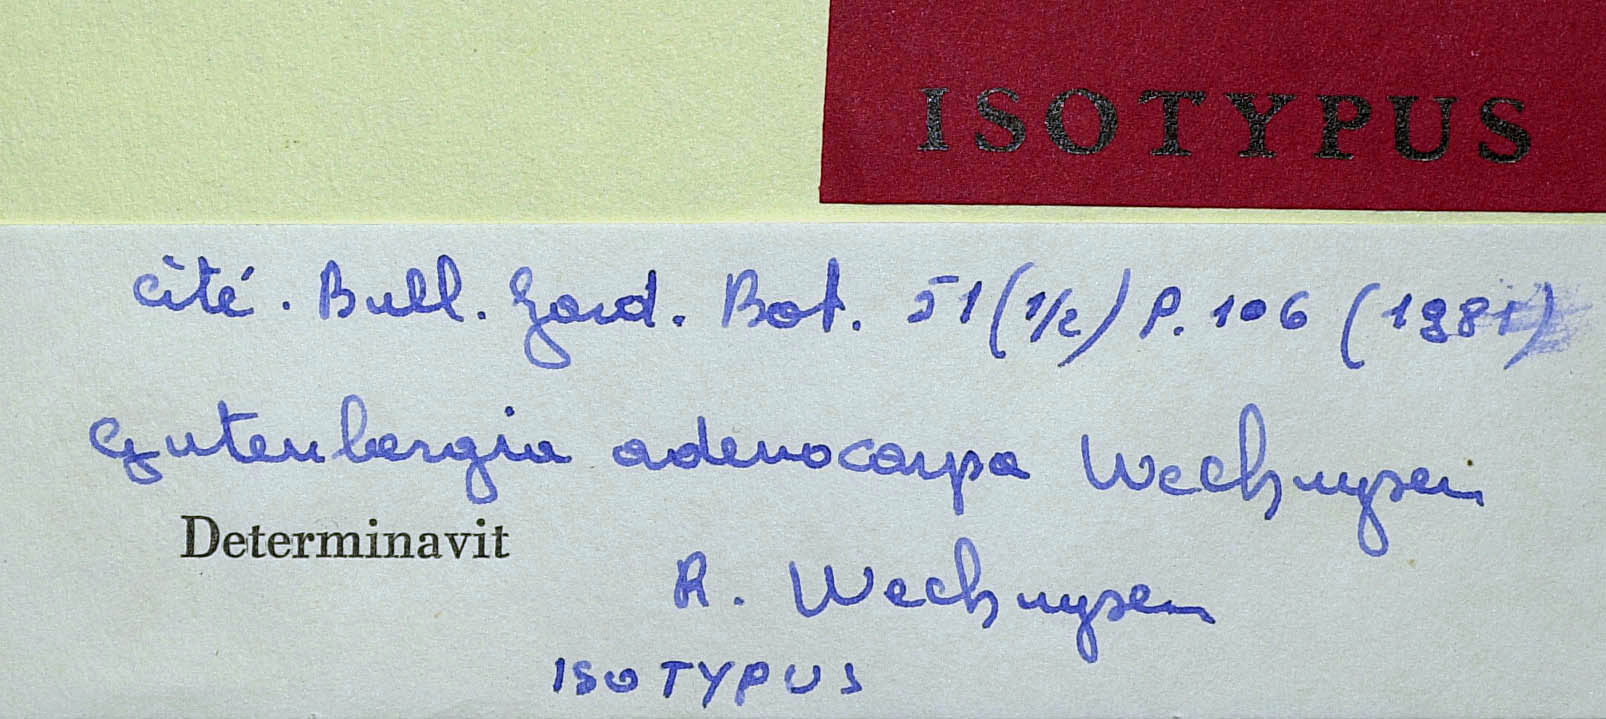 ISOTYPUS
cité. Bull. Jard. Bot. 51 (1/2) P. 106 (1981)
Gutenbergia adenocarpa Wechuysen
Determinavit
R. Wechuysen
ISOTYPUS